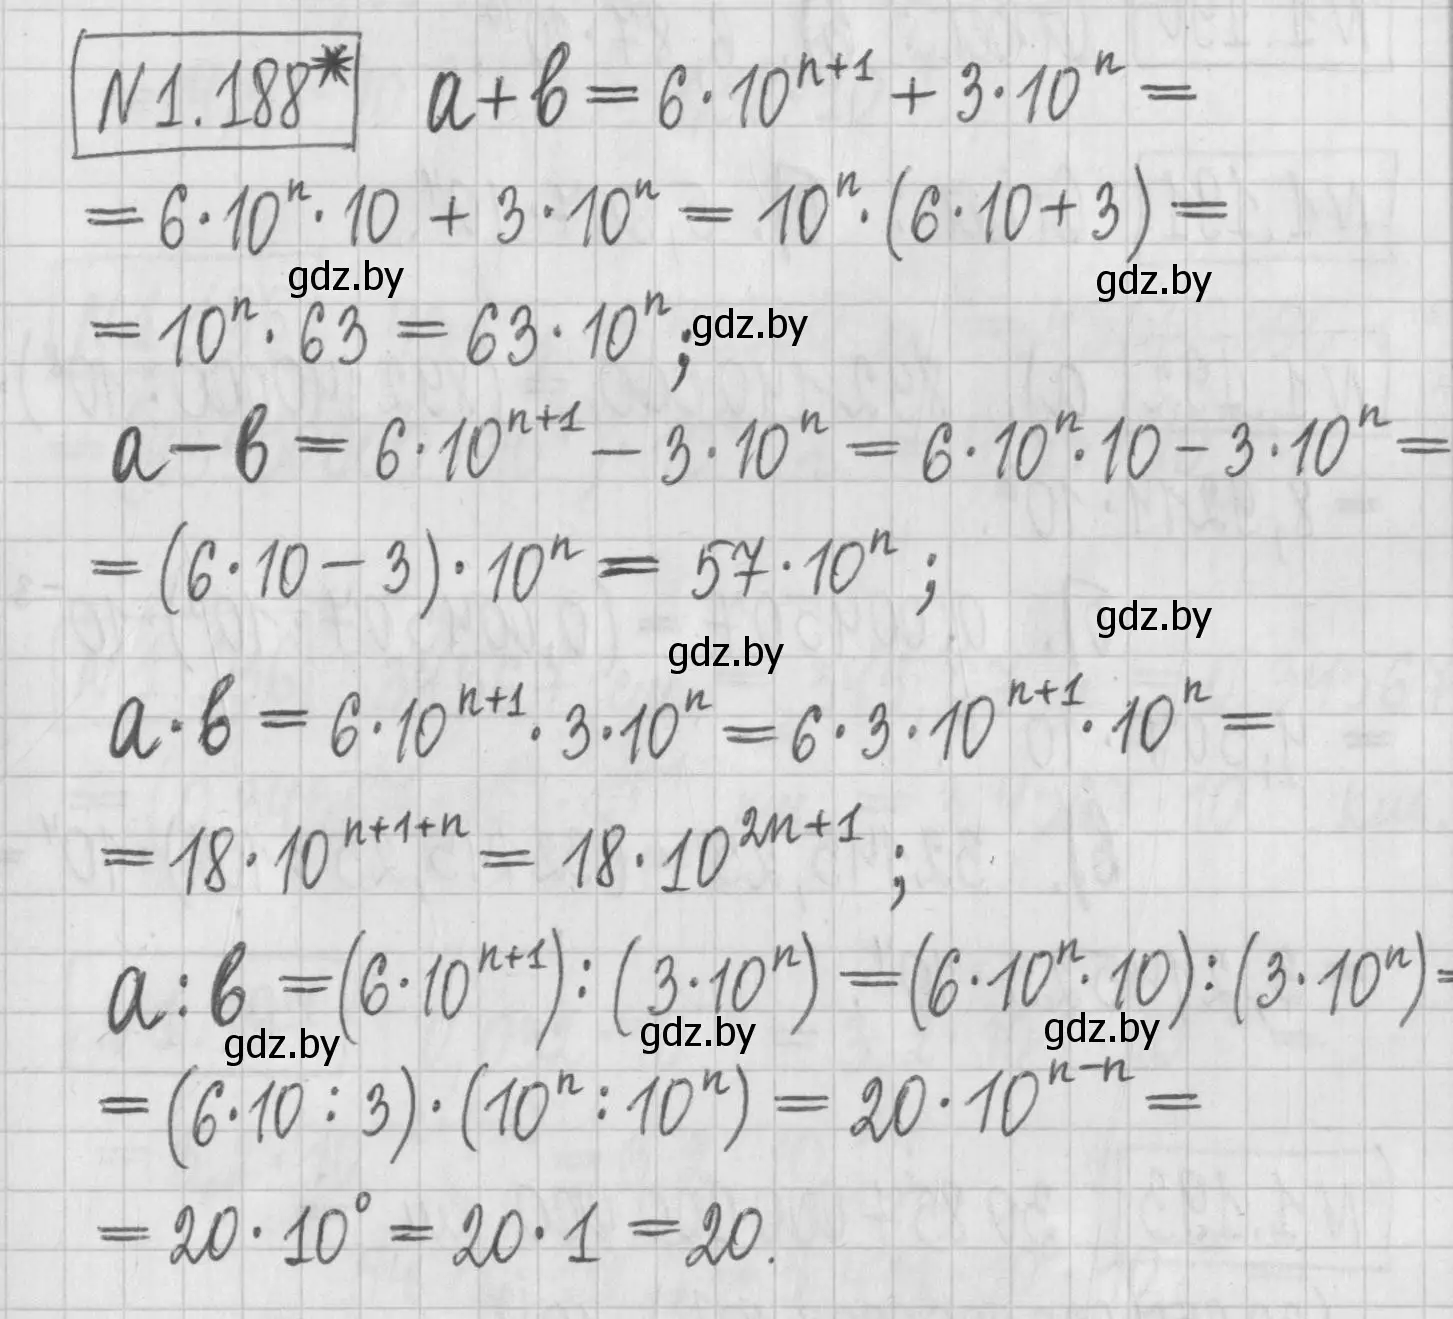 N1.188* a+b = 6·10ⁿ⁺¹ + 3·10ⁿ =
= 6·10ⁿ·10 + 3·10ⁿ = 10ⁿ·(6·10+3) =
gdz.by gdz.by
= 10ⁿ·63 = 63·10ⁿ; gdz.by
a−b = 6·10ⁿ⁺¹ − 3·10ⁿ = 6·10ⁿ·10 − 3·10ⁿ =
= (6·10 − 3)·10ⁿ = 57·10ⁿ;
gdz.by gdz.by
a·b = 6·10ⁿ⁺¹·3·10ⁿ = 6·3·10ⁿ⁺¹·10ⁿ =
= 18·10ⁿ⁺¹⁺ⁿ = 18·10²ⁿ⁺¹;
a:b = (6·10ⁿ⁺¹):(3·10ⁿ) = (6·10ⁿ·10):(3·10ⁿ) =
gdz.by gdz.by gdz.by
= (6·10:3)·(10ⁿ:10ⁿ) = 20·10ⁿ⁻ⁿ =
= 20·10⁰ = 20·1 = 20.